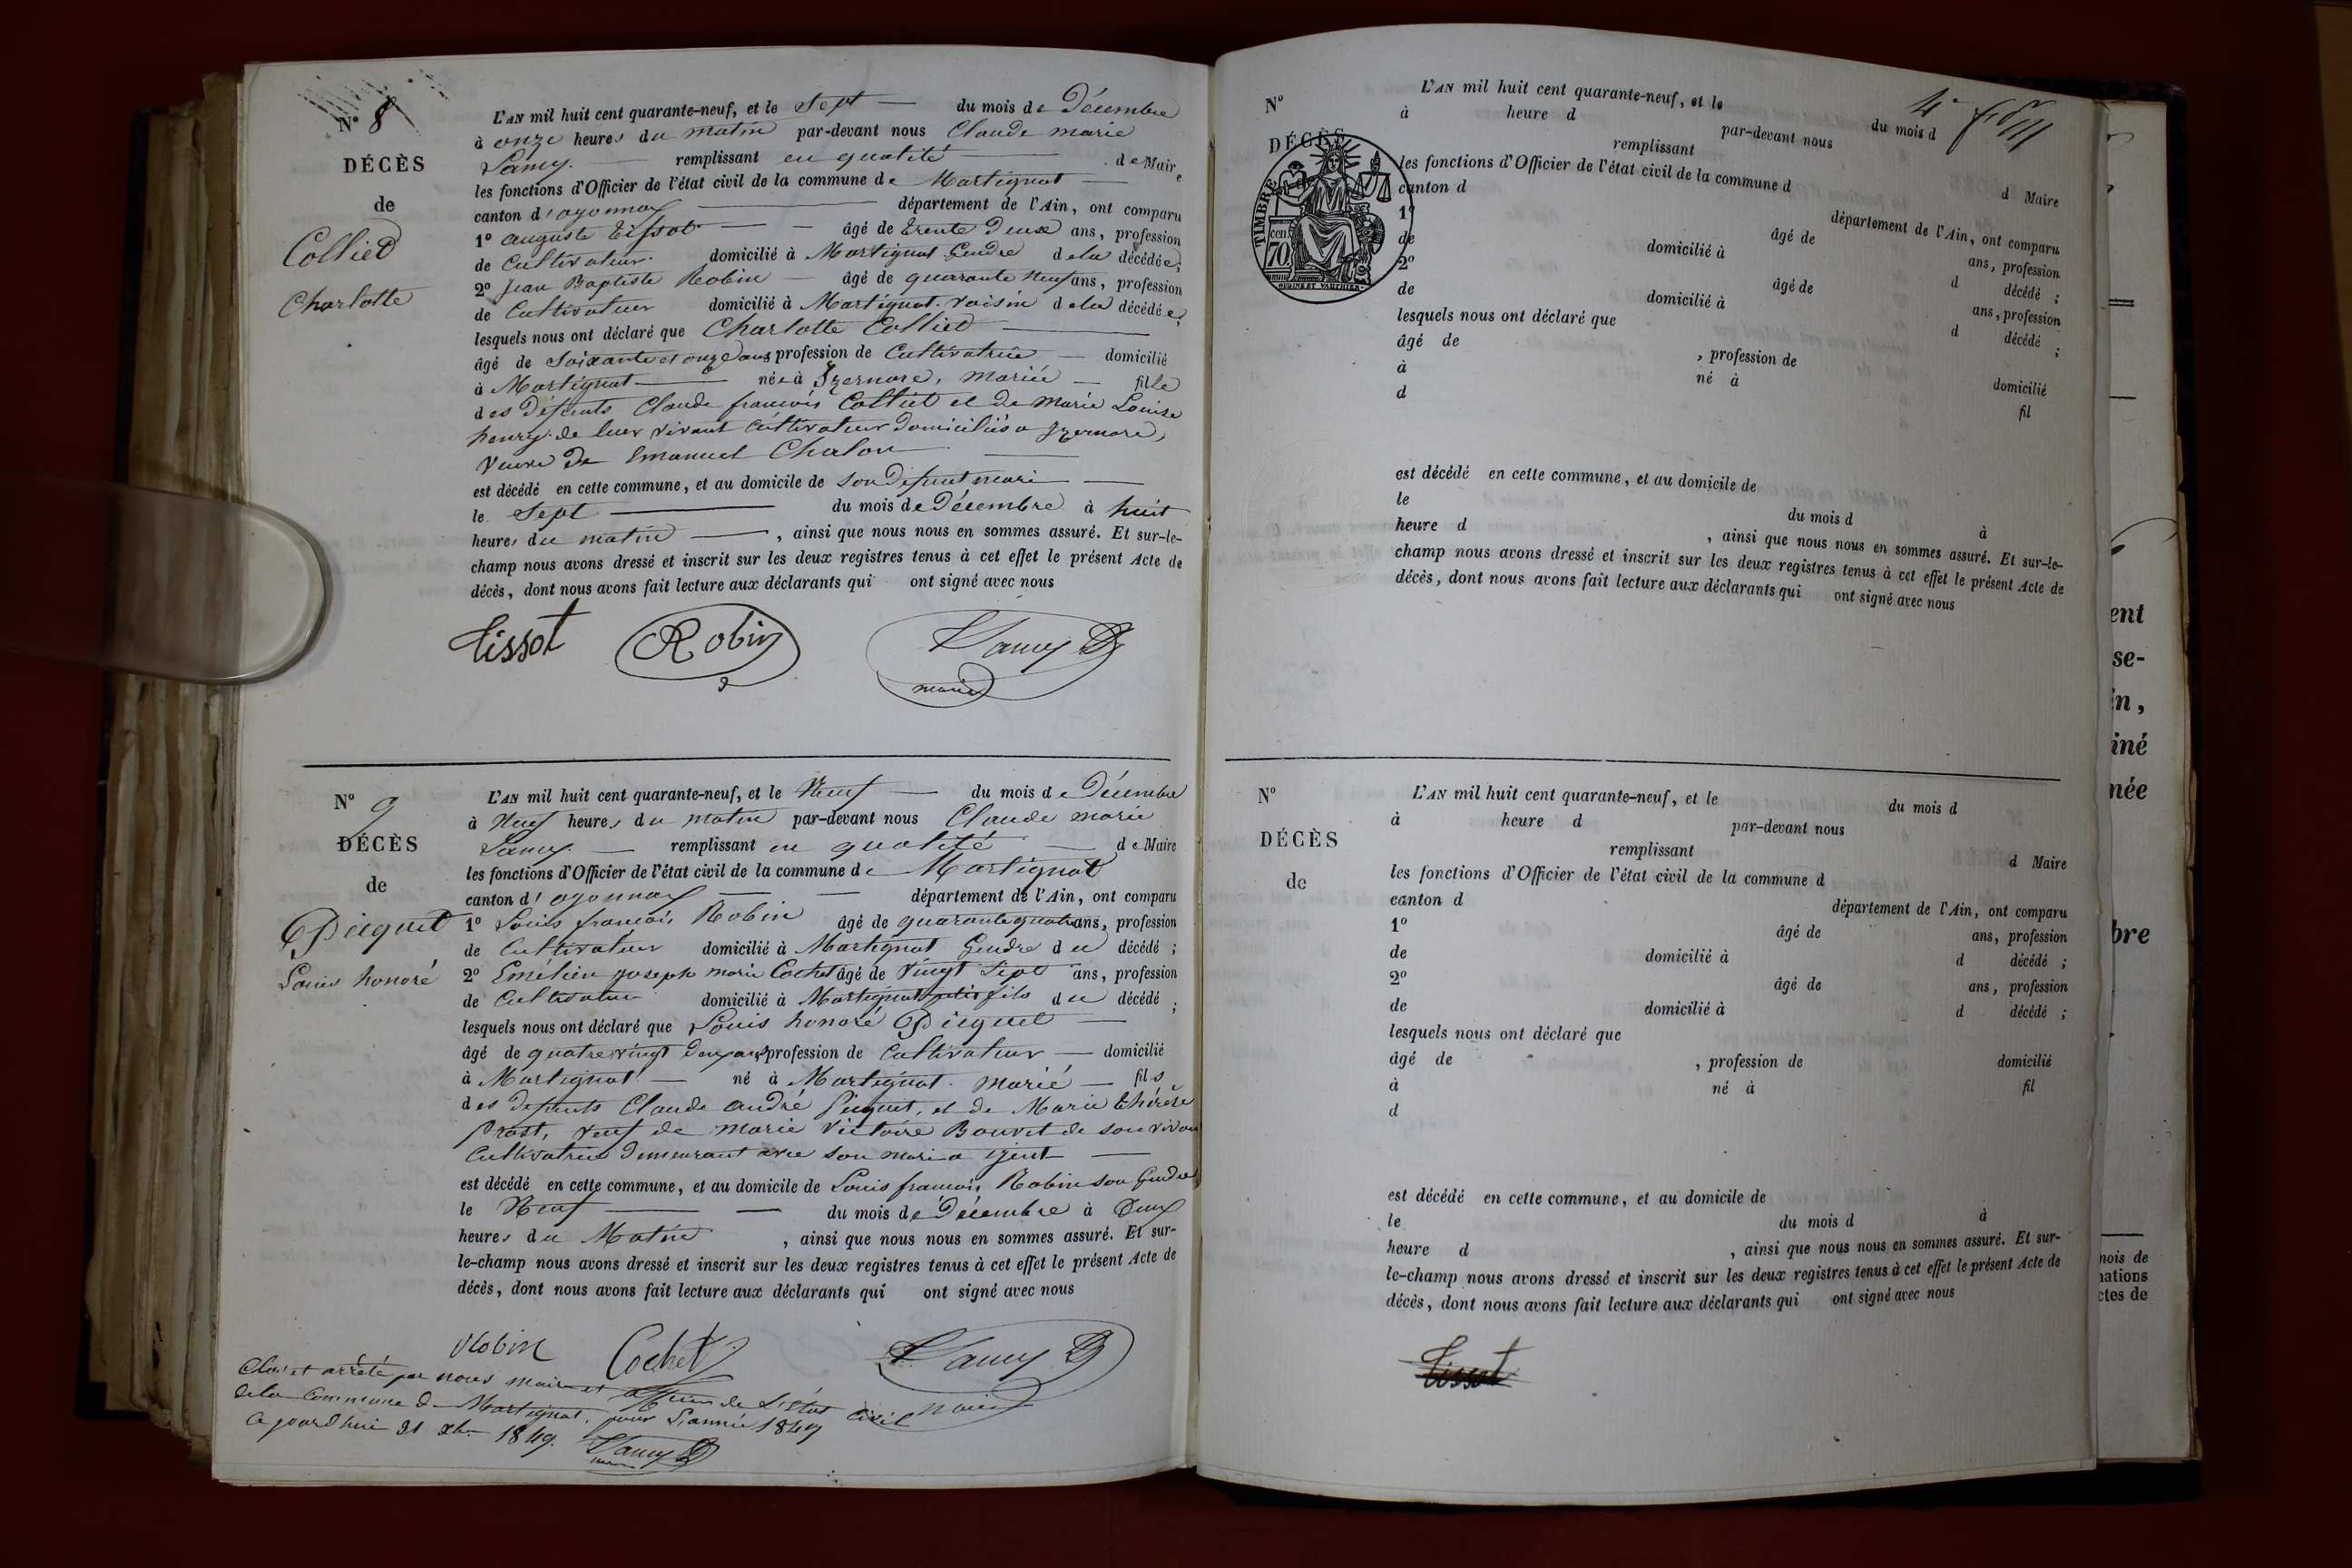 N° 8
DÉCÈS
de
Colliet
Charlotte
L'AN mil huit cent quarante-neuf, et le Sept du mois de Décembre
à onze heures du matin par-devant nous Claude marie
Lamy remplissant en qualité de Maire
les fonctions d'Officier de l'état civil de la commune de Martignat
canton d'oyonnax département de l'Ain, ont comparu
1° auguste Tissot âgé de trente Deux ans, profession
de Cultivateur domicilié à Martignat Gendre de la décédée;
2° Jean Baptiste Robin âgé de quarante Neuf ans, profession
de Cultivateur domicilié à Martignat voisin de la décédée;
lesquels nous ont déclaré que Charlotte Colliet
âgé de Soixante et onze ans profession de Cultivatrice domicilié
à Martignat née à Izernore, mariée fille
des Défunts Claude francois Colliet et de Marie Louise
henry de leur vivant Cultivateur domiciliés a Izernore,
Veuve de Emanuel Chalon
est décédé en cette commune, et au domicile de son Défunt mari
le Sept du mois de Décembre à huit
heures du matin, ainsi que nous nous en sommes assuré. Et sur-le-
champ nous avons dressé et inscrit sur les deux registres tenus à cet effet le présent Acte de
décès, dont nous avons fait lecture aux déclarants qui ont signé avec nous
Tissot Robin Lamy
maire
N° 9
DÉCÈS
de
Picquet
Louis honoré
L'AN mil huit cent quarante-neuf, et le Neuf du mois de Décembre
à Neuf heures du matin par-devant nous Claude marie
Lamy remplissant en qualité de Maire
les fonctions d'Officier de l'état civil de la commune de Martignat
canton d'oyonnax département de l'Ain, ont comparu
1° Louis francois Robin âgé de quarante quatre ans, profession
de Cultivateur domicilié à Martignat Gendre du décédé ;
2° Emélien joseph marie Cochet âgé de Vingt Sept ans, profession
de Cultivateur domicilié à Martignat petit fils du décédé ;
lesquels nous ont déclaré que Louis honoré Picquet
âgé de quatre vingt Deux ans profession de Cultivateur domicilié
à Martignat né à Martignat. Marié fils
des Defunts Claude andré Picquet, et de Marie thérèse
Prost, veuf de Marie Victoire Bouvet de son vivant
Cultivatrice demeurant avec son mari a
est décédé en cette commune, et au domicile de Louis francois Robin son Gendre
le Neuf du mois de Décembre à Deux
heures du Matin, ainsi que nous nous en sommes assuré. Et sur-
le-champ nous avons dressé et inscrit sur les deux registres tenus à cet effet le présent Acte de
décès, dont nous avons fait lecture aux déclarants qui ont signé avec nous
Robin Cochet Lamy
maire
Clos et arrêté par nous maire et officier de l'état Civil
de la Commune de Martignat, pour l'année 1849
Ce jourd'hui 31 xbre 1849.
Lamy
N°
DÉCÈS
TIMBRE
70 cen
L'AN mil huit cent quarante-neuf, et le du mois d
à heure d par-devant nous
remplissant d Maire
les fonctions d'Officier de l'état civil de la commune d
canton d département de l'Ain, ont comparu
1° âgé de ans, profession
de domicilié à d décédé ;
2° âgé de ans, profession
de domicilié à d décédé ;
lesquels nous ont déclaré que
âgé de , profession de domicilié
à né à fil
d
est décédé en cette commune, et au domicile de
le du mois d à
heure d , ainsi que nous nous en sommes assuré. Et sur-le-
champ nous avons dressé et inscrit sur les deux registres tenus à cet effet le présent Acte de
décès, dont nous avons fait lecture aux déclarants qui ont signé avec nous
N°
DÉCÈS
de
L'AN mil huit cent quarante-neuf, et le du mois d
à heure d par-devant nous
remplissant d Maire
les fonctions d'Officier de l'état civil de la commune d
canton d département de l'Ain, ont comparu
1° âgé de ans, profession
de domicilié à d décédé ;
2° âgé de ans, profession
de domicilié à d décédé ;
lesquels nous ont déclaré que
âgé de , profession de domicilié
à né à fil
d
est décédé en cette commune, et au domicile de
le du mois d à
heure d , ainsi que nous nous en sommes assuré. Et sur-
le-champ nous avons dressé et inscrit sur les deux registres tenus à cet effet le présent Acte de
décès, dont nous avons fait lecture aux déclarants qui ont signé avec nous
Tissot
ent
se-
in,
iné
née
bre
mois de
nations
ctes de